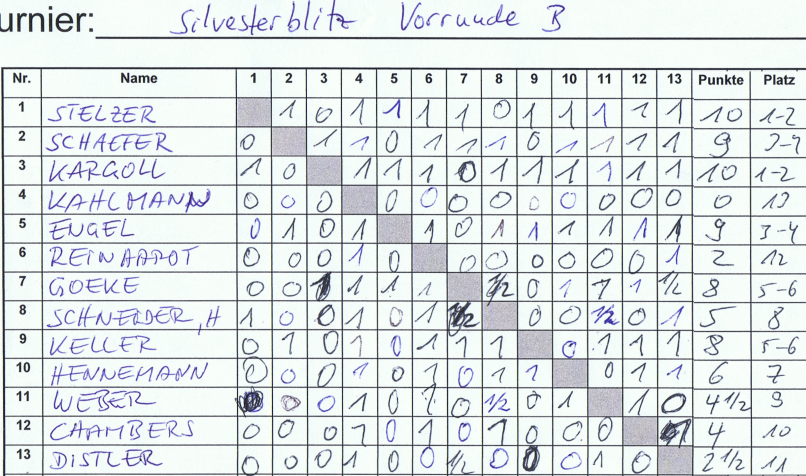 urnier: Silvesterblitz Vorrunde B
Nr. Name 1 2 3 4 5 6 7 8 9 10 11 12 13 Punkte Platz
1 STELZER 1 0 1 1 1 1 0 1 1 1 1 1 10 1-2
2 SCHAEFER 0 1 1 0 1 1 1 0 1 1 1 1 9 3-4
3 KARGOLL 1 0 1 1 1 0 1 1 1 1 1 1 10 1-2
4 KAHLMANN 0 0 0 0 0 0 0 0 0 0 0 0 0 13
5 ENGEL 0 1 0 1 1 0 1 1 1 1 1 1 9 3-4
6 REINHARDT 0 0 0 1 0 0 0 0 0 0 0 1 2 12
7 GOEKE 0 0 1 1 1 1 1/2 0 1 1 1 1/2 8 5-6
8 SCHNEIDER, H 1 0 0 1 0 1 1/2 0 0 1/2 0 1 5 8
9 KELLER 0 1 0 1 0 1 1 1 0 1 1 1 8 5-6
10 HENNEMANN 0 0 0 1 0 1 0 1 1 0 1 1 6 7
11 WEBER 0 0 1 0 1 0 1/2 0 1 1 0 4 1/2 9
12 CHAMBERS 0 0 0 1 0 1 0 1 0 0 0 1 4 10
13 DISTLER 0 0 0 1 0 0 1/2 0 0 0 1 0 2 1/2 11